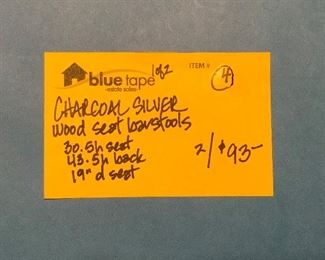 blue tape
-estate sales-
1 of 2
ITEM #
4
CHARCOAL SILVER
wood seat barstools
30.5h seat
43.5h back
19" d seat
2/$93-